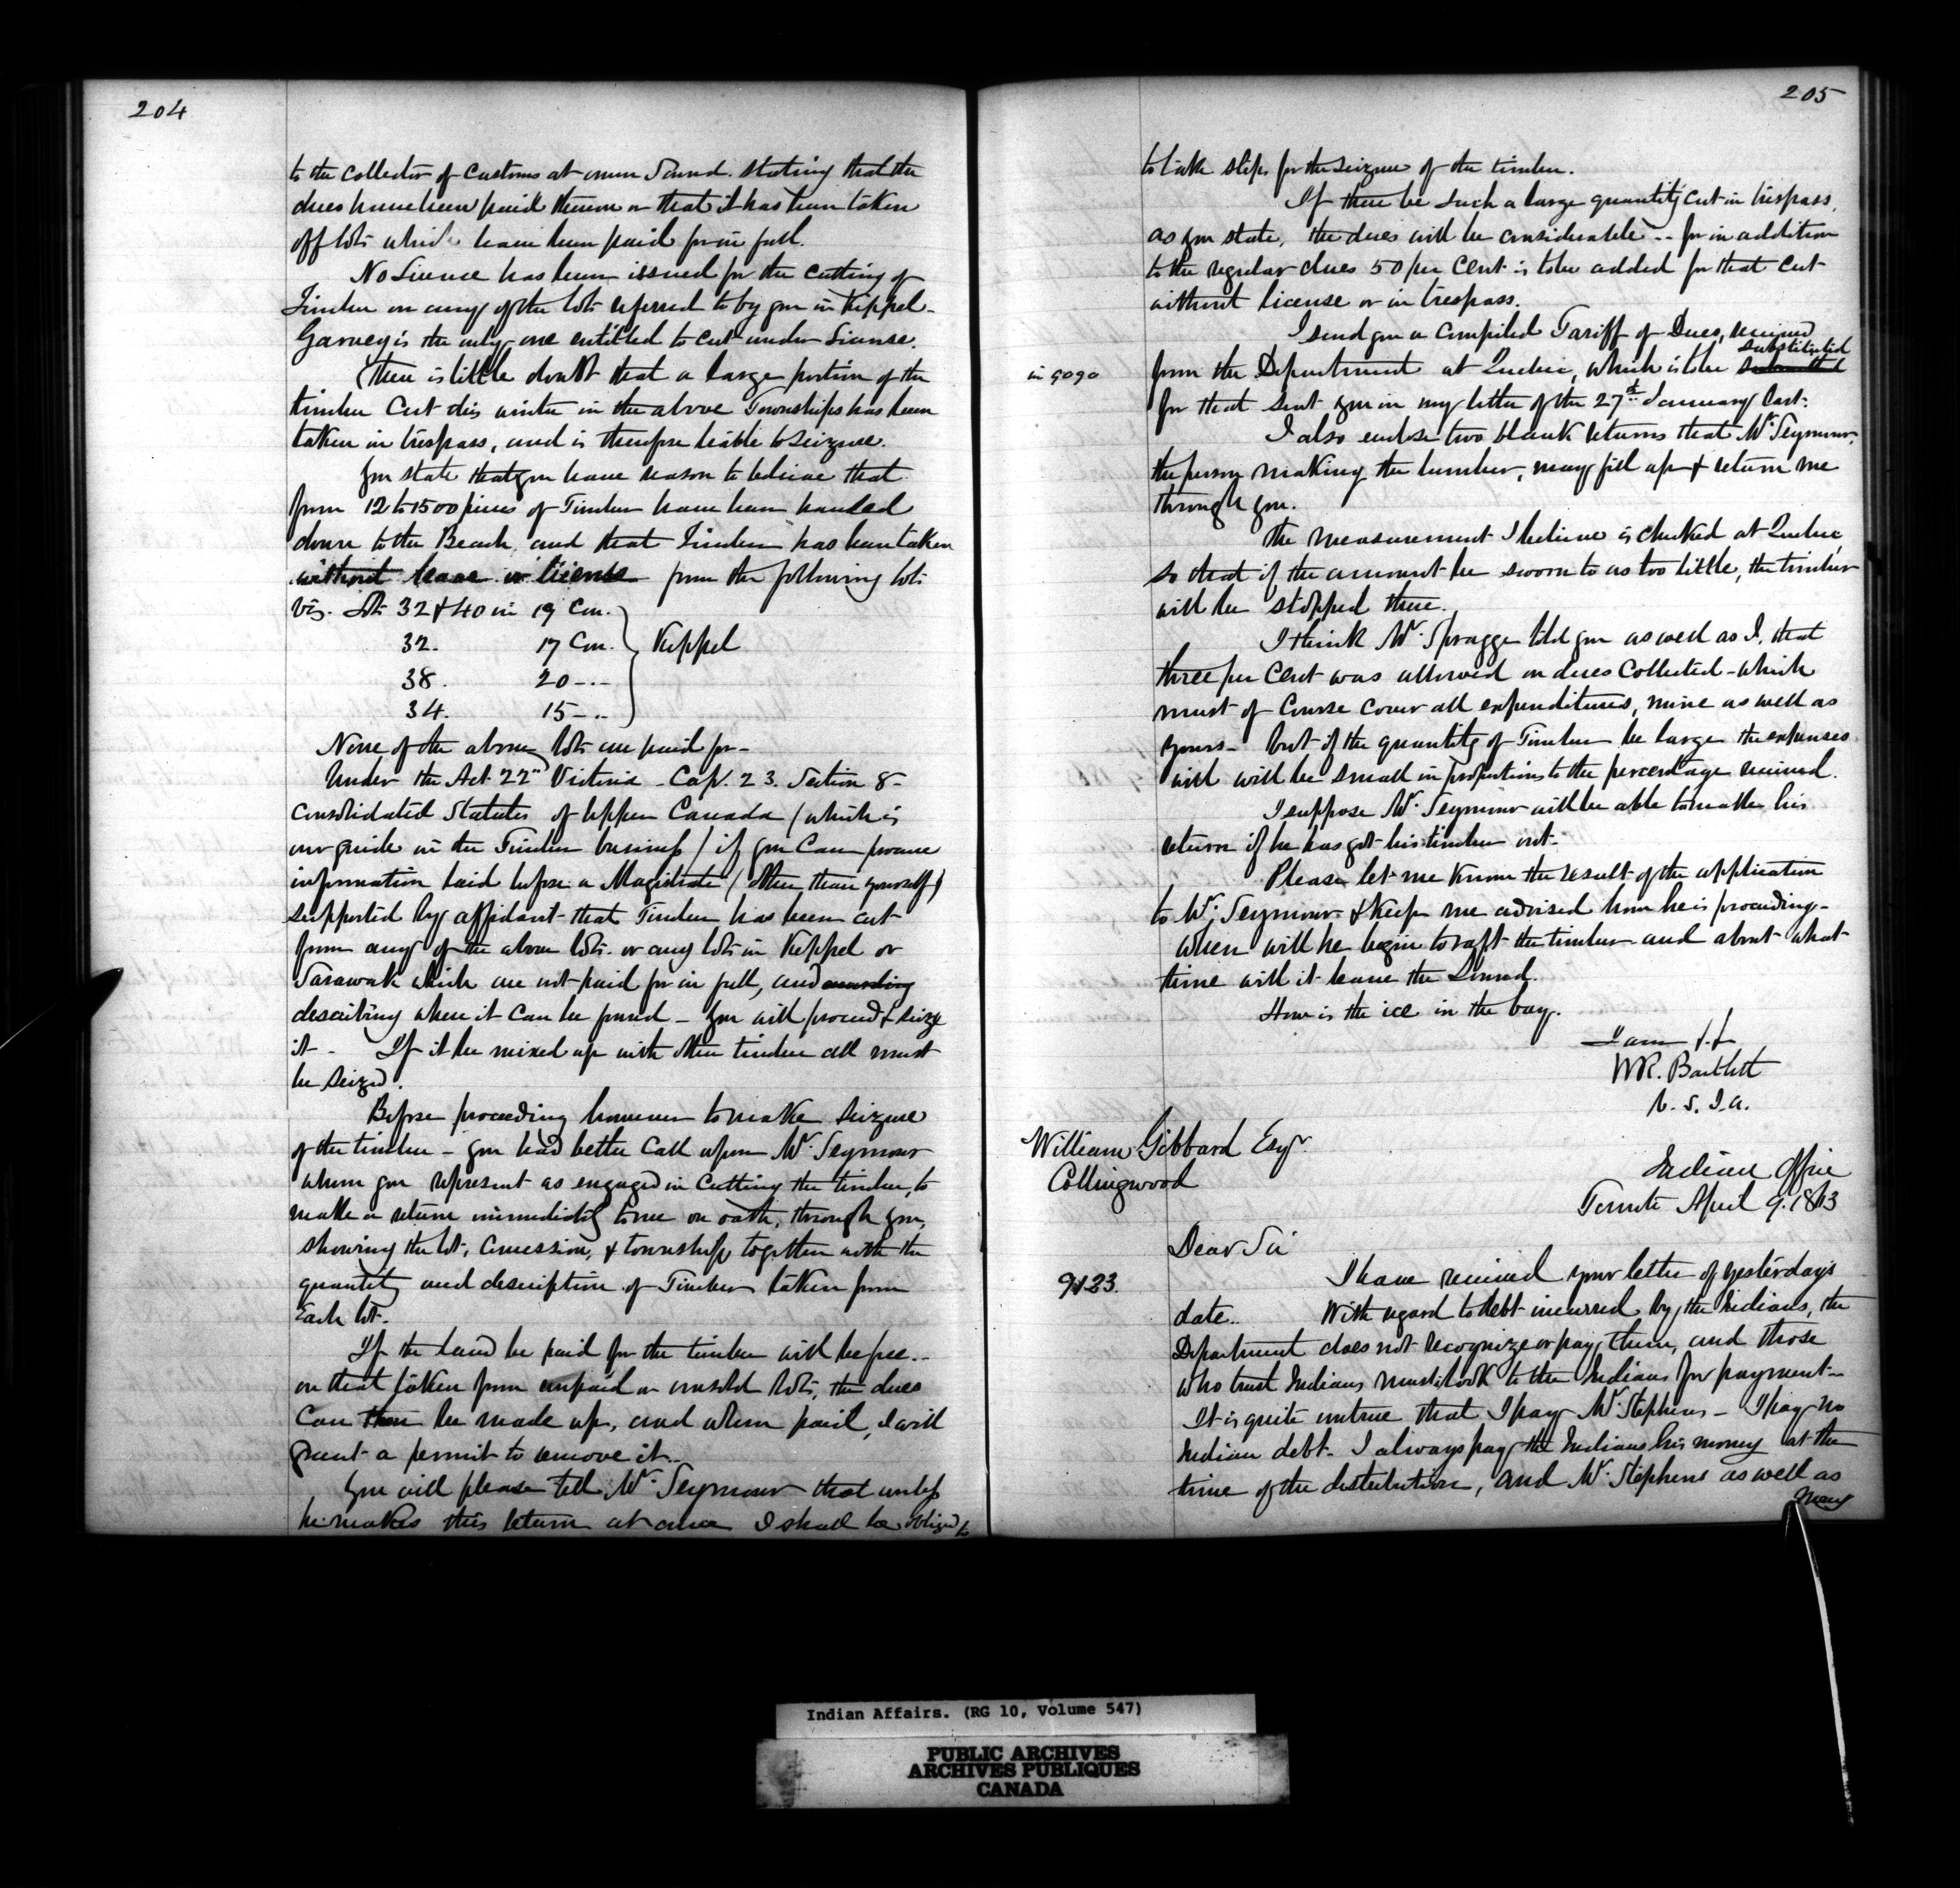 204
to the Collector of Customs at Owen Sound. stating that the
dues have been paid thereon or that it has been taken
off lots which have been paid for in full.
No License has been issued for the cutting of
Timber on any of the lots referred to by you in Keppel.
Garvey is the only one entitled to cut under License.
There is little doubt that a large portion of the
timber cut this winter in the above Townships has been
taken in trespass, and is therefore liable to seizure.
You state that you have reason to believe that
from 12 to 1500 pieces of Timber have been hauled
down to the Beach, and that Timber has been taken
without leave or license from the following lots
viz. Lots 32 & 40 in 19 Con.
32. 17 Con. Keppel
38. 20 -.-
34. 15 -..
None of the above lots are paid for -
Under the Act 22" Victoria - Cap. 23. Section 8 -
Consolidated Statutes of Upper Canada (which is
our guide in the Timber business) if you can procure
information laid before a Magistrate (other than yourself)
supported by affidavit that Timber has been cut
from any of the above lots. or any lots in Keppel or
Sarawak which are not paid for in full, and
describing where it can be found - you will proceed & seize
it - If it be mixed up with other timber all must
be seized.
Before proceeding however to make seizure
of the timber - you had better call upon Mr. Seymour
whom you represent as engaged in cutting the timber, to
make a return immediately to me on oath, through you,
showing the lot, Concession, & township together with the
quantity and description of Timber taken from
Each lot.
If the land be paid for the timber will be free. -
on that taken from unpaid or unsold lots, the dues
can then be made up, and when paid, I will
grant a permit to remove it. -
You will please tell Mr. Seymour that unless
he makes this return at once I shall be obliged to
205
to take steps for the seizure of the timber.
If there be such a large quantity cut in trespass,
as you state, the dues will be considerable -. for in addition
to the regular dues 50 per cent is to be added for that cut
without license or in trespass.
I send you a compiled Tariff of Dues, received
substituted
in 9090 from the Department at Quebec, which is to be
for that sent you in my letter of the 27th January last.
I also enclose two blank returns that Mr. Seymour,
the person making the lumber, may fill up & return me
through you.
The measurement I believe is checked at Quebec,
so that if the amount be sworn to as too little, the timber
will be stopped there.
I think Mr. Spragge told you as well as I, that
three per cent was allowed on dues collected - which
must of course cover all expenditures, mine as well as
yours - but if the quantity of Timber be large the expenses
will will be small in proportion to the percentage received.
I suppose Mr. Seymour will be able to make his
return if he has got his timber out.
Please let me know the result of the application
to Mr. Seymour & keep me advised how he is proceeding -
when will he begin to raft the timber and about what
time will it leave the Sound.
How is the ice in the bay.
I am &.&
WR. Bartlett
V. S. I. A.
William Gibbard Esqr.
Collingwood
Indian Office
Toronto April 9. 1863
Dear Sir
9123. I have received your letter of yesterday's
date.. With regard to debt incurred by the Indians, the
Department does not recognize or pay them, and those
who trust Indians must look to the Indians for payment -
It is quite untrue that I pay Mr. Stephens - I pay no
Indian debt. I always pay the Indians his money at the
time of the distribution, and Mr. Stephens as well as
many
Indian Affairs. (RG 10, Volume 547)
PUBLIC ARCHIVES
ARCHIVES PUBLIQUES
CANADA